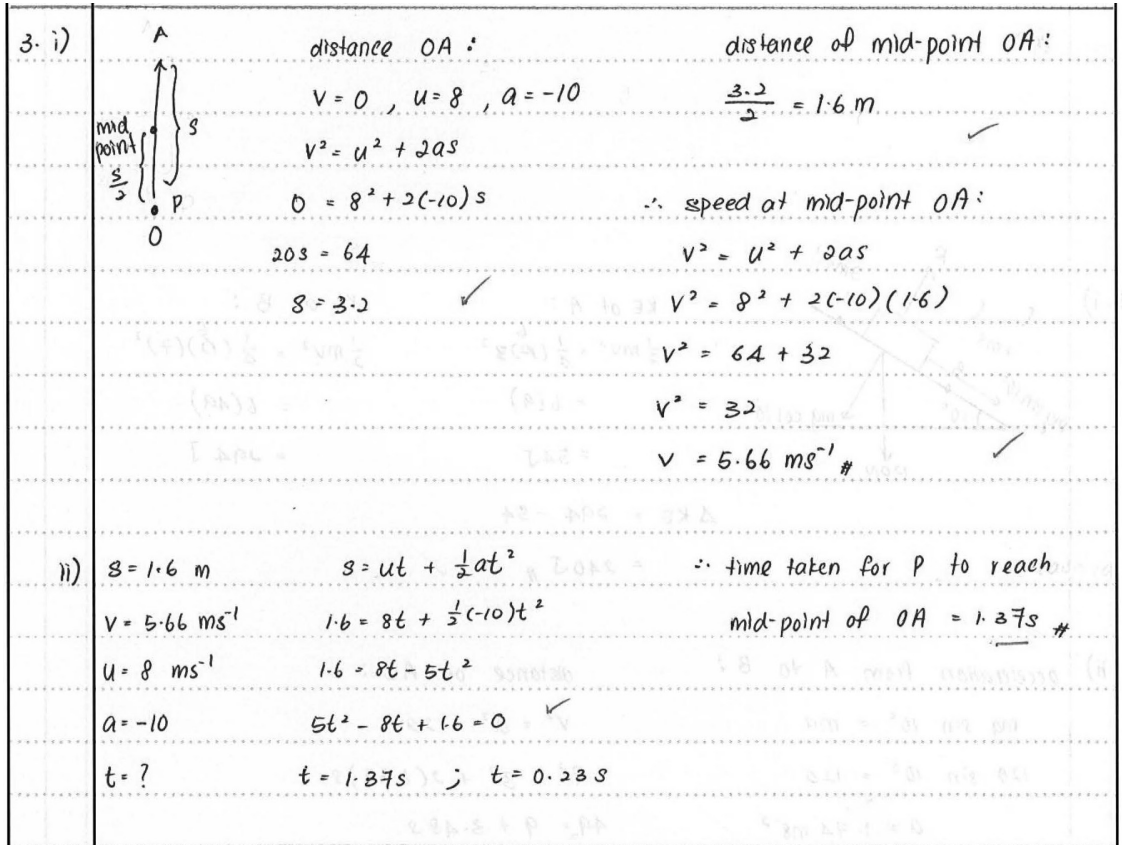 3. i)
A
mid
point
s/2
S
P
O
distance OA :
V = 0 , u = 8 , a = -10
v² = u² + 2as
0 = 8² + 2(-10)s
20s = 64
s = 3.2
distance of mid-point OA :
3.2/2 = 1.6 m
∴ speed at mid-point OA :
v² = u² + 2as
v² = 8² + 2(-10)(1.6)
v² = 64 + 32
v² = 32
v = 5.66 ms⁻¹ #
ii)
s = 1.6 m
v = 5.66 ms⁻¹
u = 8 ms⁻¹
a = -10
t = ?
s = ut + ½at²
1.6 = 8t + ½(-10)t²
1.6 = 8t - 5t²
5t² - 8t + 1.6 = 0
t = 1.37s ; t = 0.23s
∴ time taken for P to reach
mid-point of OA = 1.37s #